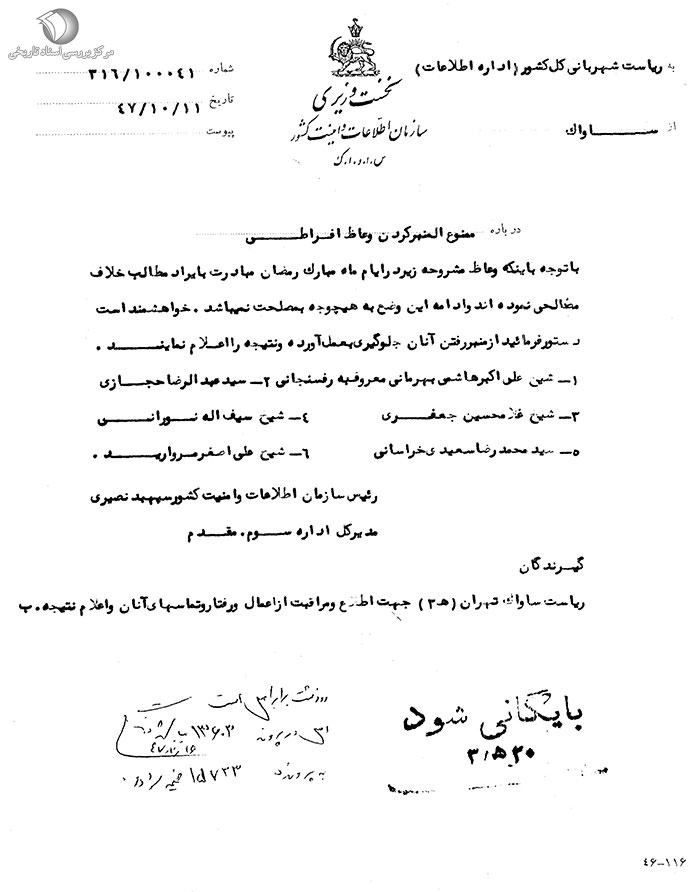 مرکز بررسی اسناد تاریخی
به ریاست شهربانی کل کشور (اداره اطلاعات)
از ساواک
نخست وزیری
سازمان اطلاعات و امنیت کشور
س.ا.و.ا.ک
شماره ۳۱۶/۱۰۰۰۴۱
تاریخ ۴۷/۱۰/۱۱
پیوست
درباره ممنوع المنبر کردن وعاظ افراطی
باتوجه باینکه وعاظ مشروحه زیر در ایام ماه مبارک رمضان مبادرت بایراد مطالب خلاف
مصالحی نموده اند و ادامه این وضع به هیچوجه بمصلحت نمیباشد. خواهشمند است
دستور فرمائید از منبر رفتن آنان جلوگیری بعمل آورده و نتیجه را اعلام نمایند.
۱ـ شیخ علی اکبر هاشمی بهرمانی معروف به رفسنجانی ۲ـ سید عبدالرضا حجازی
۳ـ شیخ غلامحسین جعفری ۴ـ شیخ سیف اله نورانی
۵ـ سید محمد رضا سعیدی خراسانی ۶ـ شیخ علی اصغر مروارید.
رئیس سازمان اطلاعات و امنیت کشور سپهبد نصیری
مدیر کل اداره سوم. مقدم
گیرندگان
ریاست ساواک تهران (ﻫ ۳) جهت اطلاع و مراقبت از اعمال و رفتار و تماسهای آنان و اعلام نتیجه. ب
بایگانی شود
رونوشت برابر اصل است
اصل در پرونده
به پرونده ضمیمه
۴۶-۱۱۶